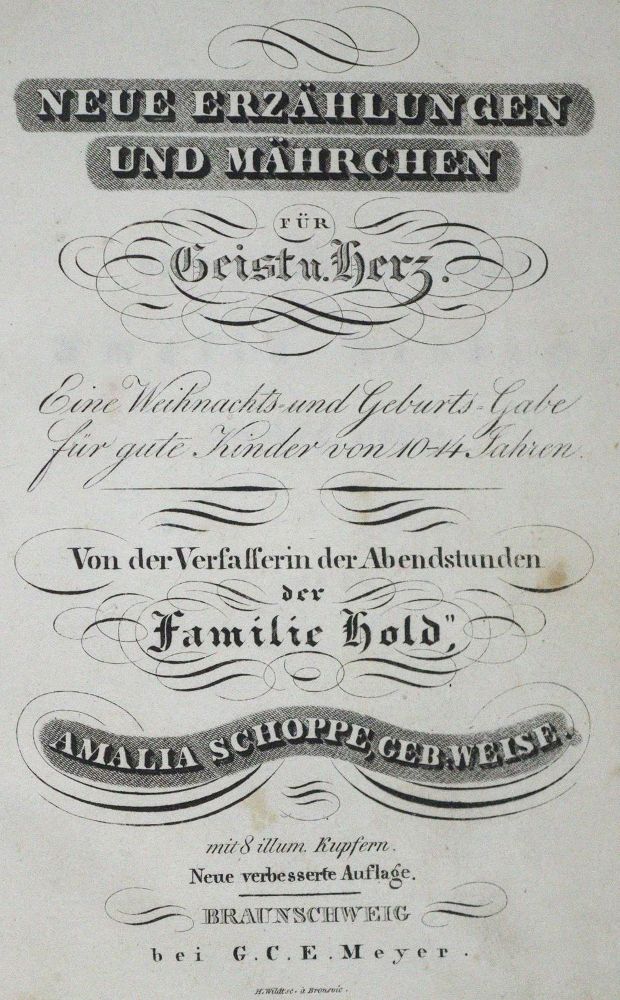 NEUE ERZÄHLUNGEN
UND MÄHRCHEN
FÜR
Geist u. Herz.
Eine Weihnachts- und Geburts-Gabe
für gute Kinder von 10-14 Jahren.
Von der Verfaſſerin der Abendstunden
der
Familie Hold",
AMALIA SCHOPPE, GEB. WEISE.
mit 8 illum. Kupfern.
Neue verbesserte Auflage.
BRAUNSCHWEIG
bei G. C. E. Meyer.
H. Wildt sc. à Bronsvic.